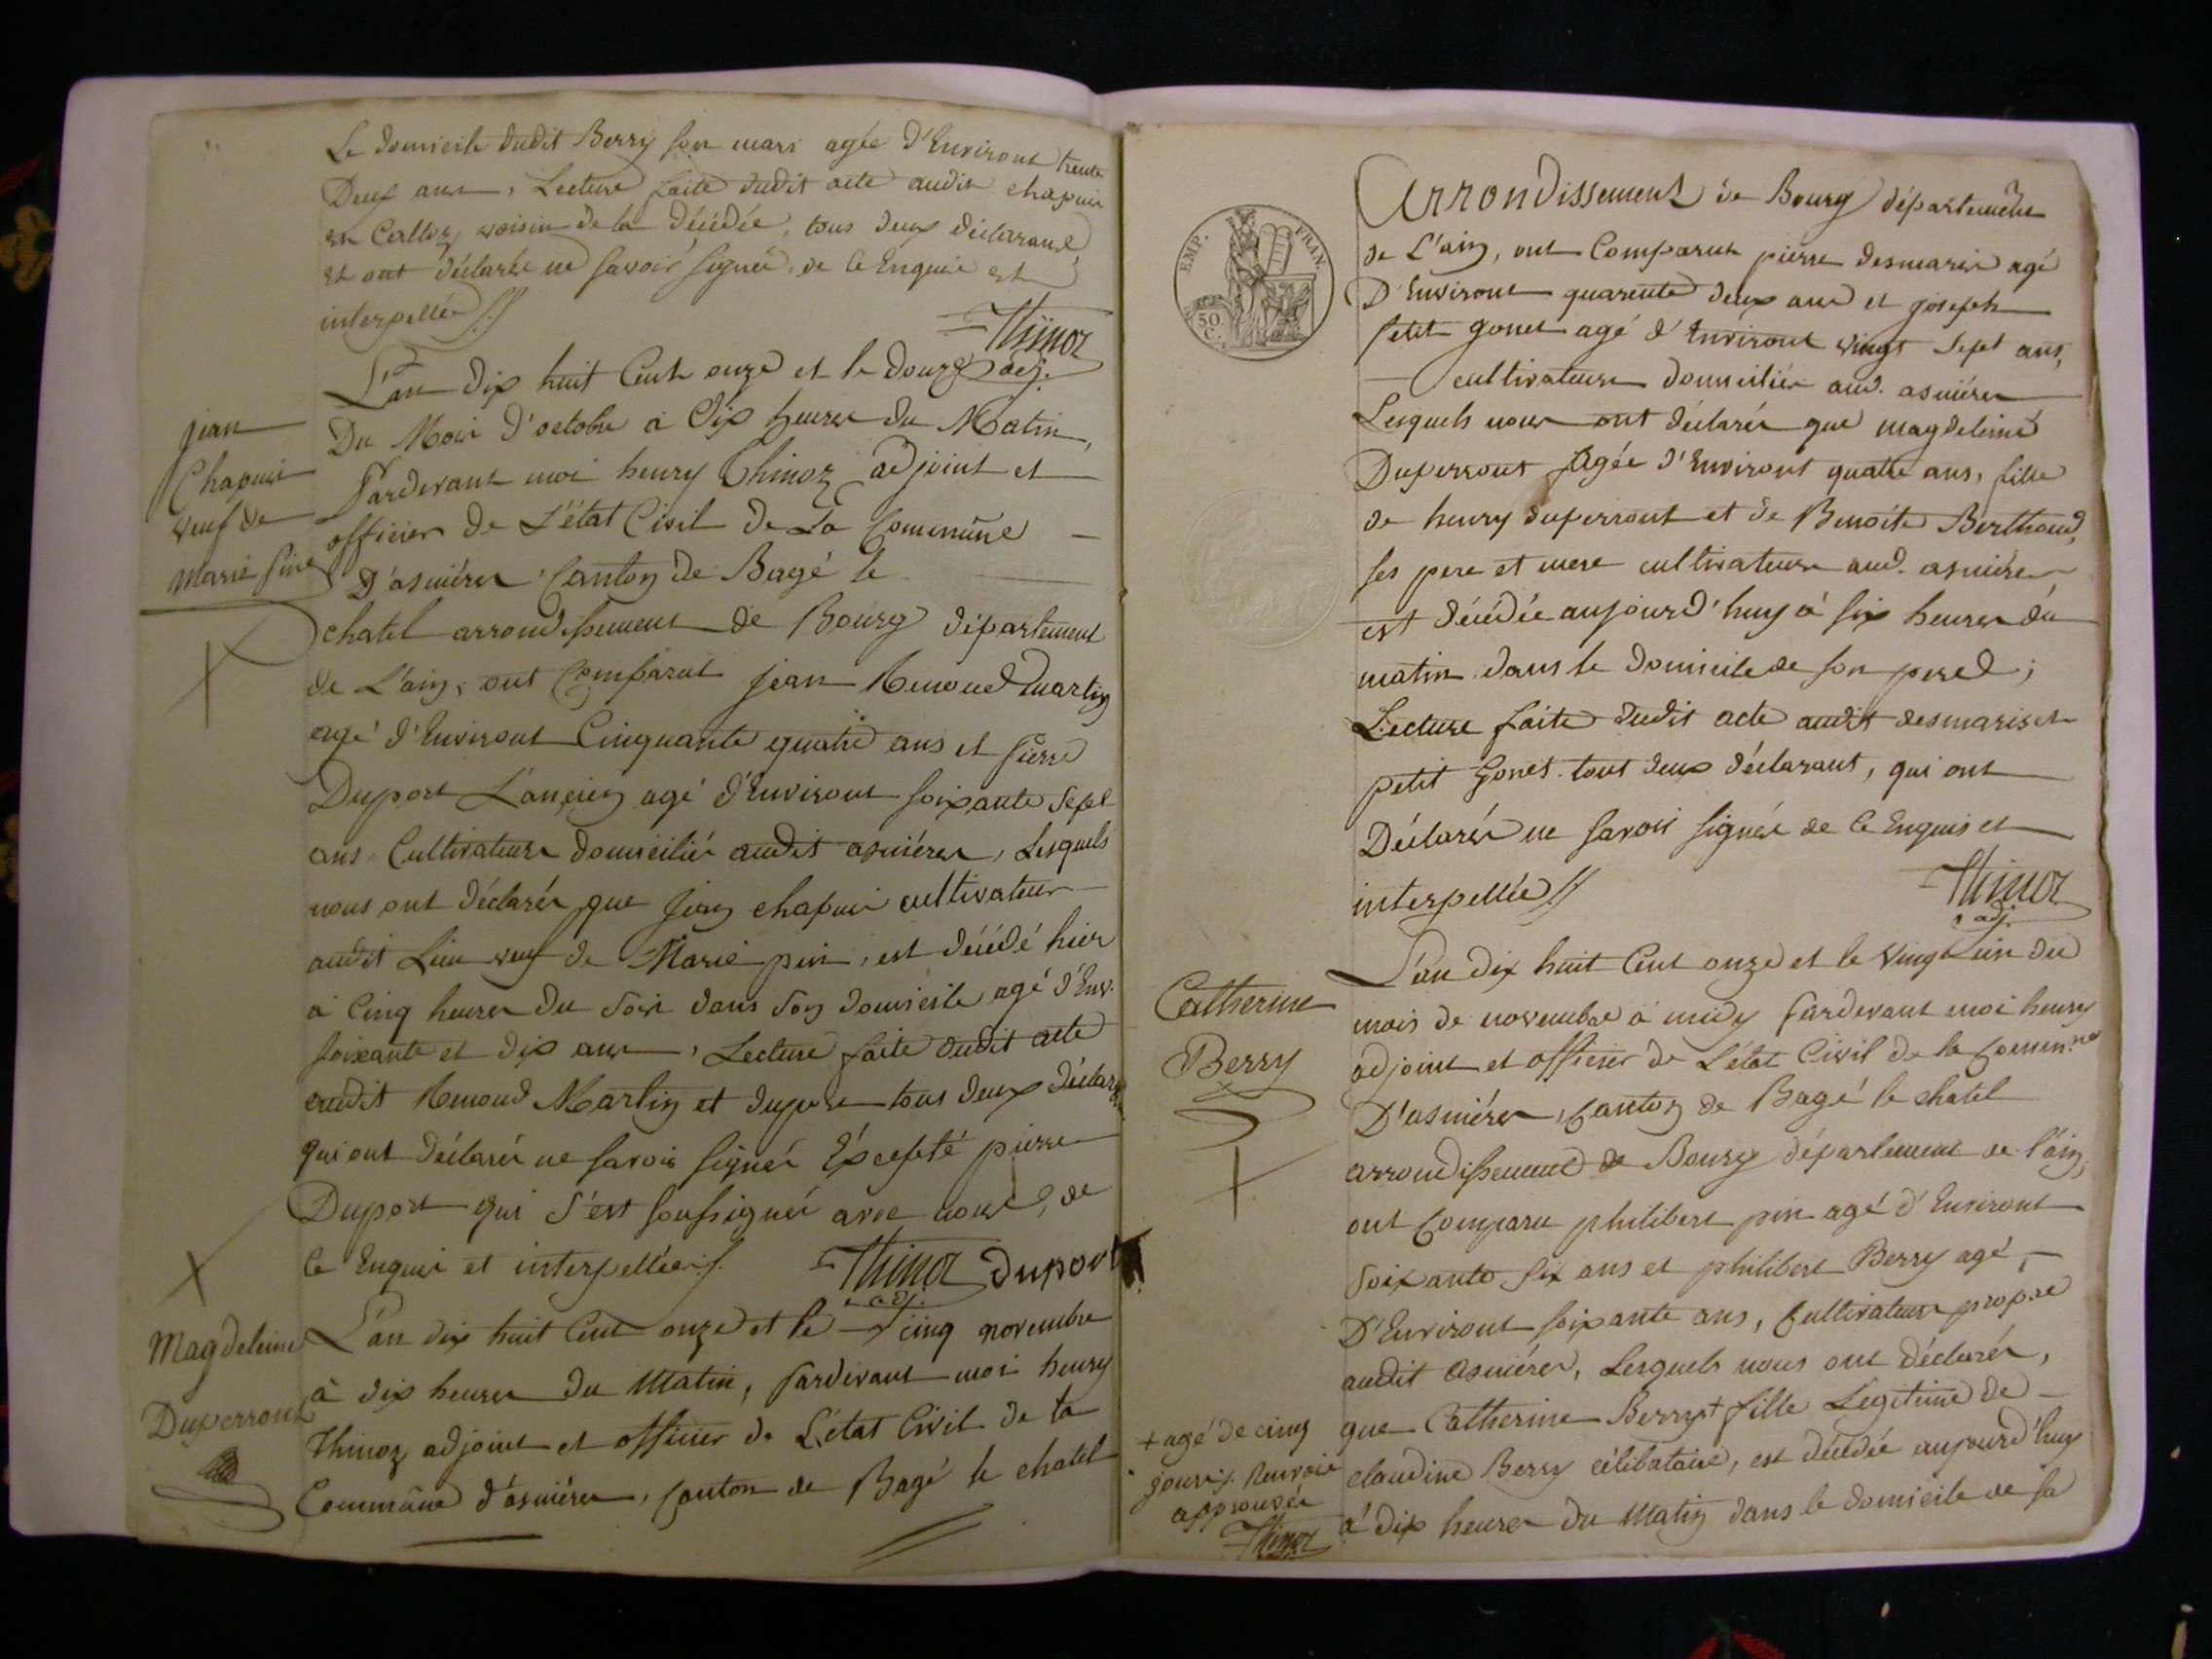 Le domicile dudit Berry son mari agée d'Environt trente
Deux ans, Lecture faite dudit acte audit chapuis
et Calloz voisin de la décédée, tous deux déclarant
et ont déclarés ne savoir signée, de ce Enquis et
interpellée //
Thinoz
adj.
jean
Chapuis
veuf de
Marie pine
L'an dix huit Cent onze et le douze
Du Mois d'octobre à Dix heures du Matin,
Pardevant moi henry Thinoz adjoint et
officier de L'état Civil de La Commune
D'asniéres Canton de Bagé le
chatel arrondissement de Bourg département
de L'ain, ont Comparut jean Renoud Martin
agé d'Environt Cinquante quatre ans et pierre
Duport L'ancien agé d'Environt soixante Sept
ans, Cultivateurs domiciliés audit asniéres, Lesquels
nous ont déclarés que jean chapuis cultivateur
audit Lieu veuf de Marie pin, est décédé hier
à Cinq heures du Soir dans Son domicile agé d'Env.
soixante et dix ans, Lecture faite dudit acte
audit Renoud Martin et duport tous deux déclar.
qui ont déclarés ne savoir signés Excepté pierre
Duport qui S'est soussignés avec nous, de
Ce Enquis et interpellées.
Thinoz duport
adj.
Magdeleine
Duperront
L'an dix huit Cent onze et le cinq novembre
à dix heures du Matin, pardevant moi henry
Thinoz adjoint et officier de L'état Civil de la
Commune d'asniéres, Canton de Bagé le chatel
EMP. FRAN.
50.
C.
Arrondissement de Bourg département
de L'ain, ont Comparut pierre desmaris agé
D'Environt quarente deux ans et joseph
petit gonet agé d'Environt vingt Sept ans,
cultivateurs domiciliés aud. asniéres
Lesquels nous ont déclarés que magdeleine
Duperront Agée d'Environt quatre ans, fille
de henry duperront et de Benoite Berthoud,
ses pere et mere cultivateurs aud. asniéres
est décédée aujourd'huy à six heures du
matin dans le domicile de son pere;
Lecture faite dudit acte audit desmaris et
petit Gonet tout deux déclarant, qui ont
Déclarés ne savoir signés de Ce Enquis et
interpellée //
Thinoz
adj.
Catherine
Berry
L'an dix huit Cent onze et le Vingt un du
mois de novembre à midy pardevant moi henry
adjoint et officier de L'état Civil de la Comm.ne
D'asniéres, Canton de Bagé le chatel
arrondissement de Bourg département de l'ain,
ont Comparu philibert pin agé d'Environt
soixante six ans et philibert Berry agé
D'Environt soixante ans, Cultivateurs prop.re
audit asniéres, Lesquels nous ont déclarés,
que Catherine Berry + fille Legitime de
claudine Berry célibataire, est décédée aujourd'huy
à dix heures du Matin dans le domicile de sa
+ agé de cinq
jours. Renvoie
approuvée
Thinoz